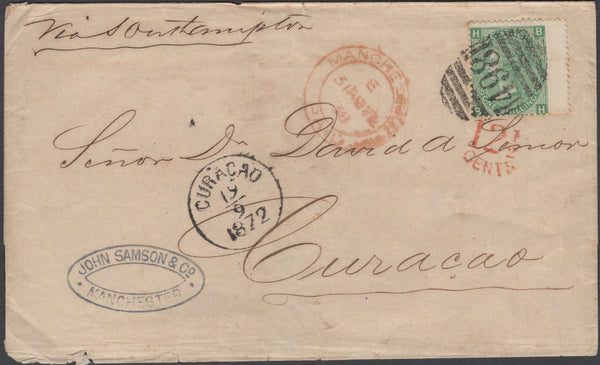 Via Southampton
MANCHES
E
31 AU 72
H B
498
H
12½
CENTS
Señor Dn David A de Simor
CURAÇAO
19/9
1872
Curaçao
JOHN SAMSON & CO.
MANCHESTER